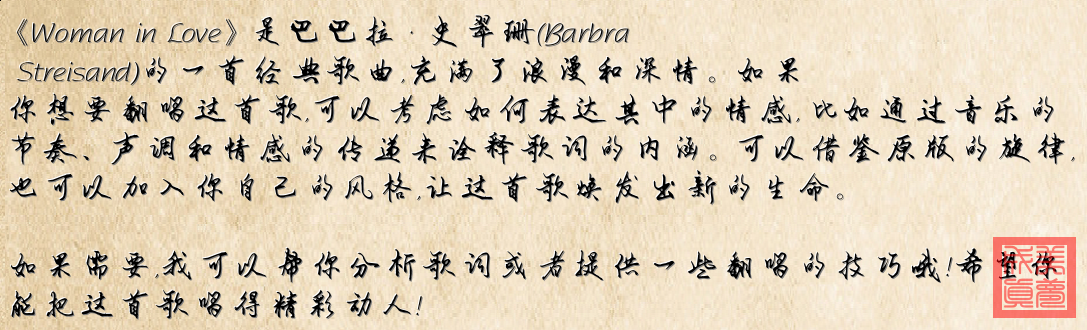 《Woman in Love》是巴巴拉·史翠珊(Barbra
Streisand)的一首经典歌曲,充满了浪漫和深情。如果
你想要翻唱这首歌,可以考虑如何表达其中的情感,比如通过音乐的
节奏、声调和情感的传递来诠释歌词的内涵。可以借鉴原版的旋律,
也可以加入你自己的风格,让这首歌焕发出新的生命。
如果需要,我可以帮你分析歌词或者提供一些翻唱的技巧哦!希望你
能把这首歌唱得精彩动人!